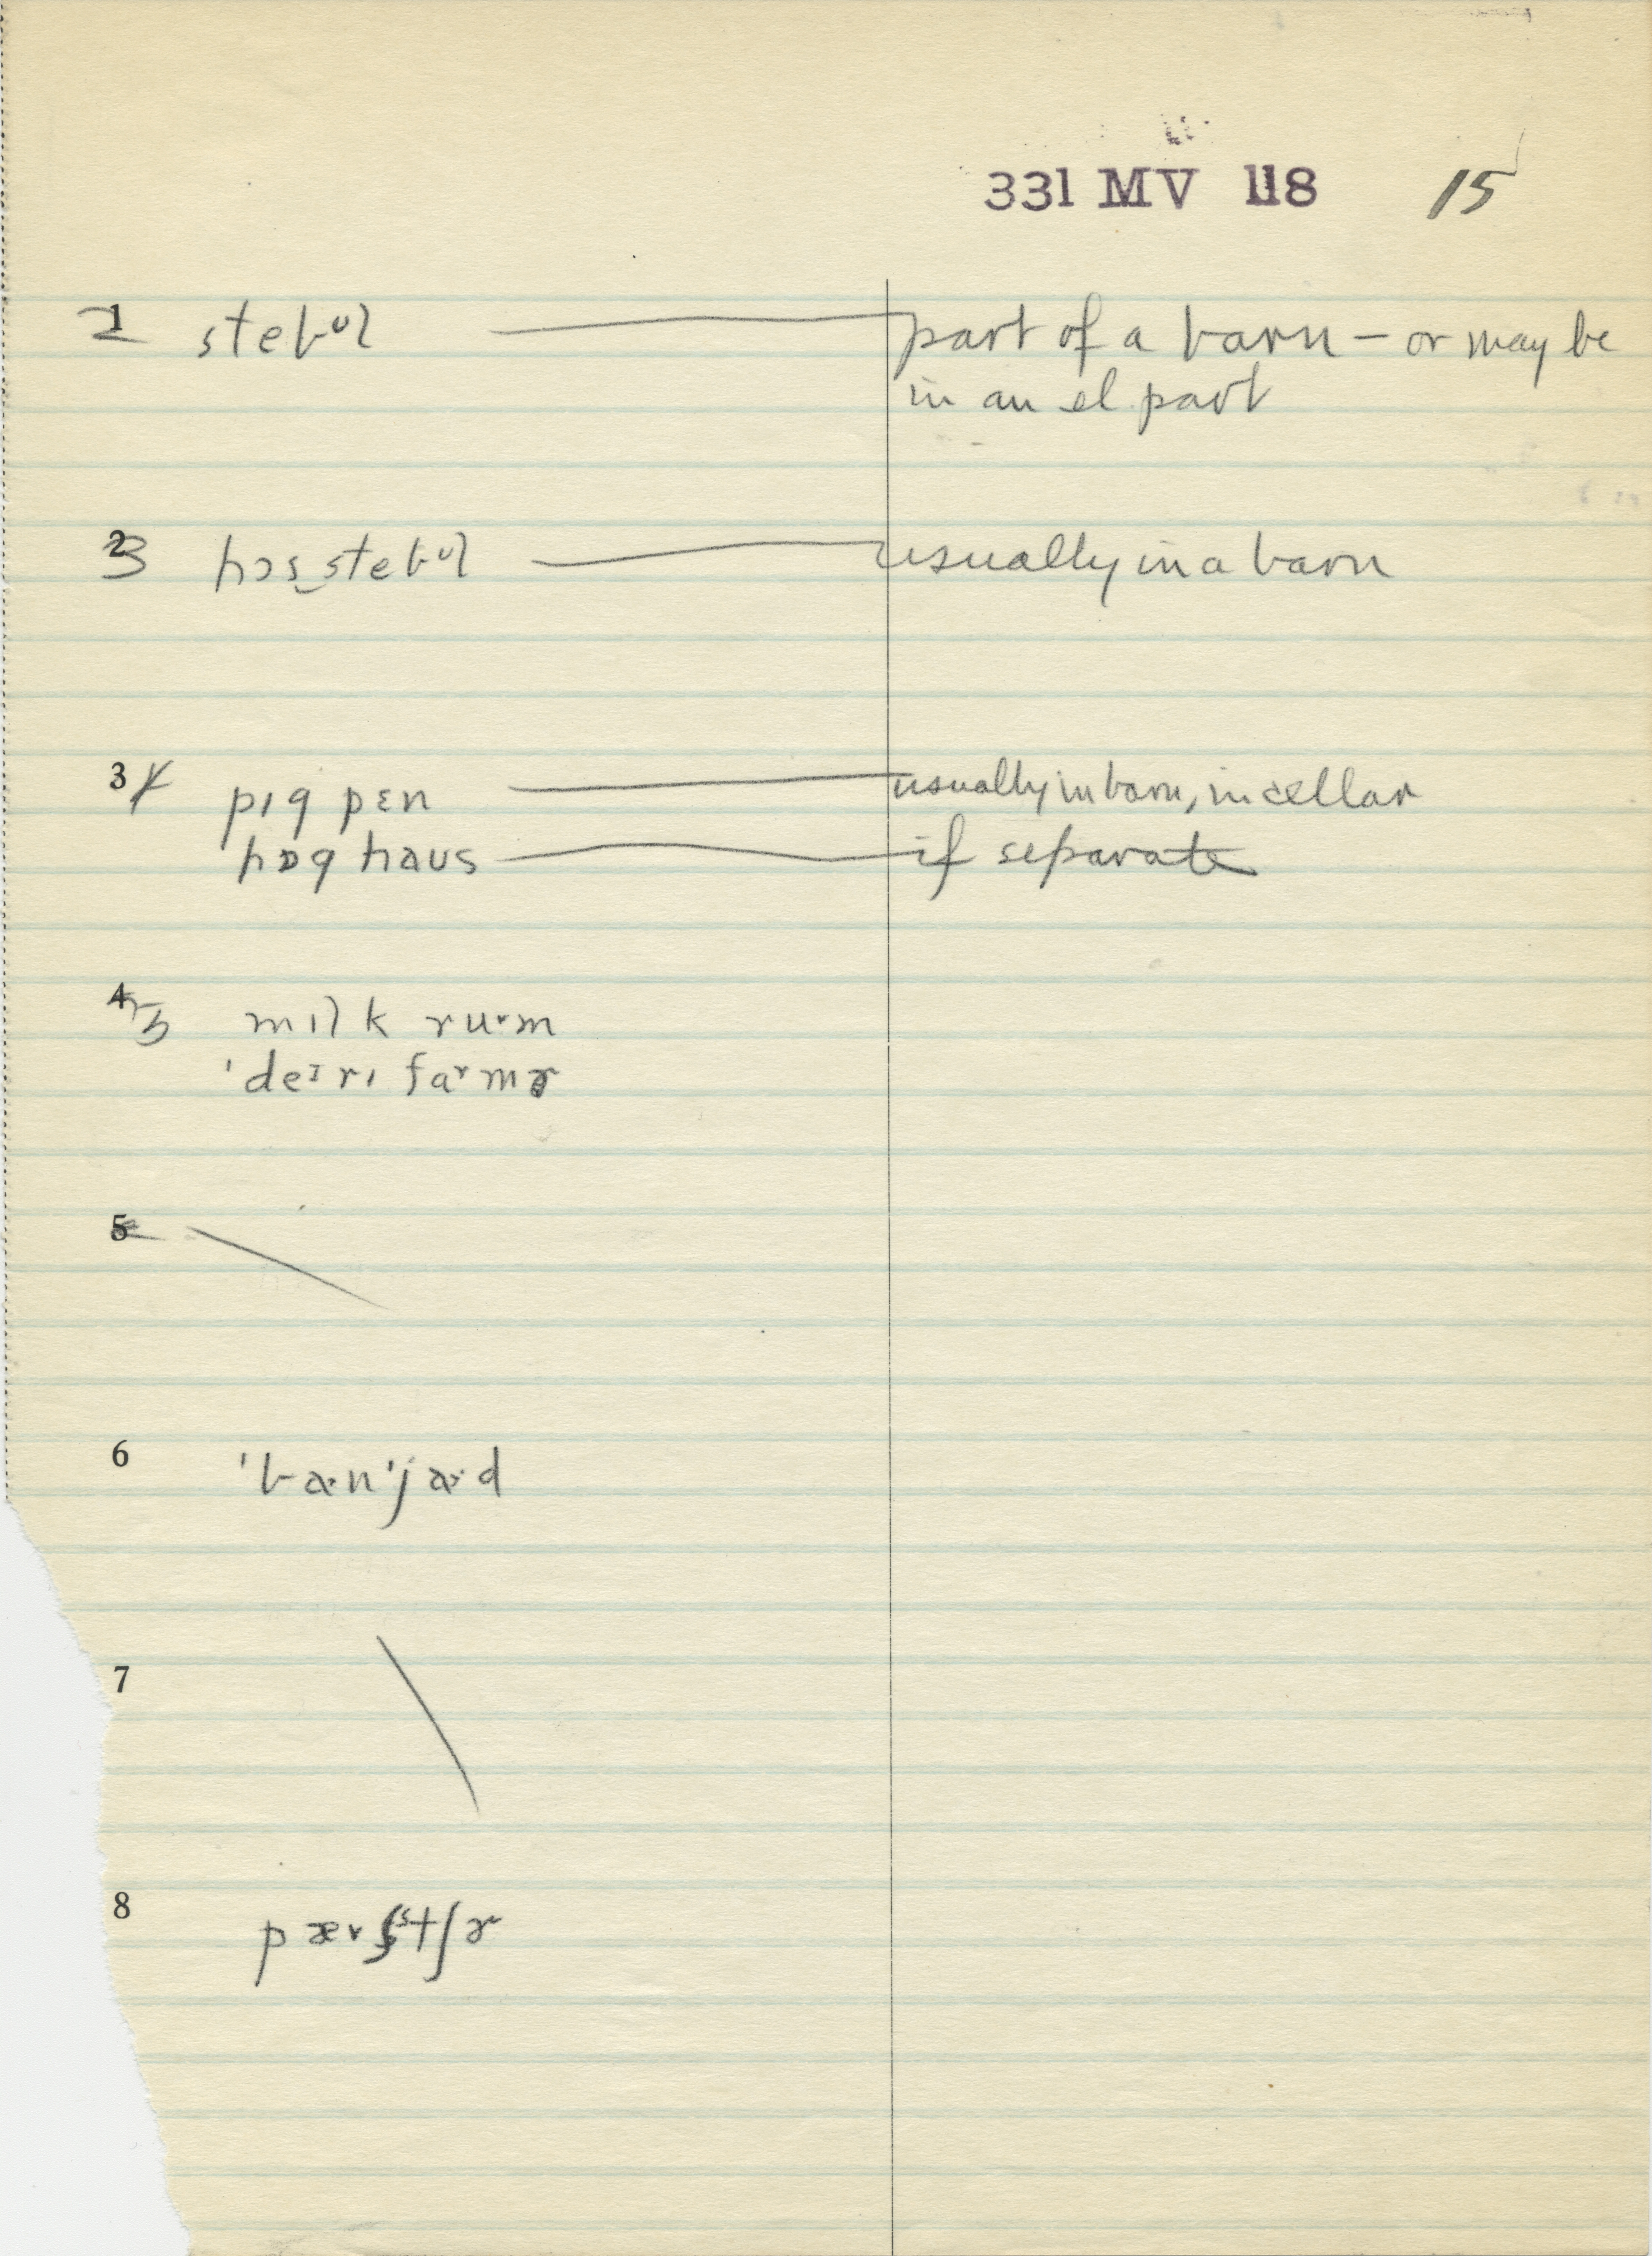 331 MV 118 15
1 2 stebᵁl part of a barn – or may be
in an el part
2 3 hɔs‿stebᵁl usually in a barn
3 4 pɪg pɛn usually in barn, in cellar
hɒg haʊs if separate
4 5 mɪlk ruᵛm
ˈdeɪrɪ faᵛmɚ
5
6 ˈba·nˈja·d
7
8